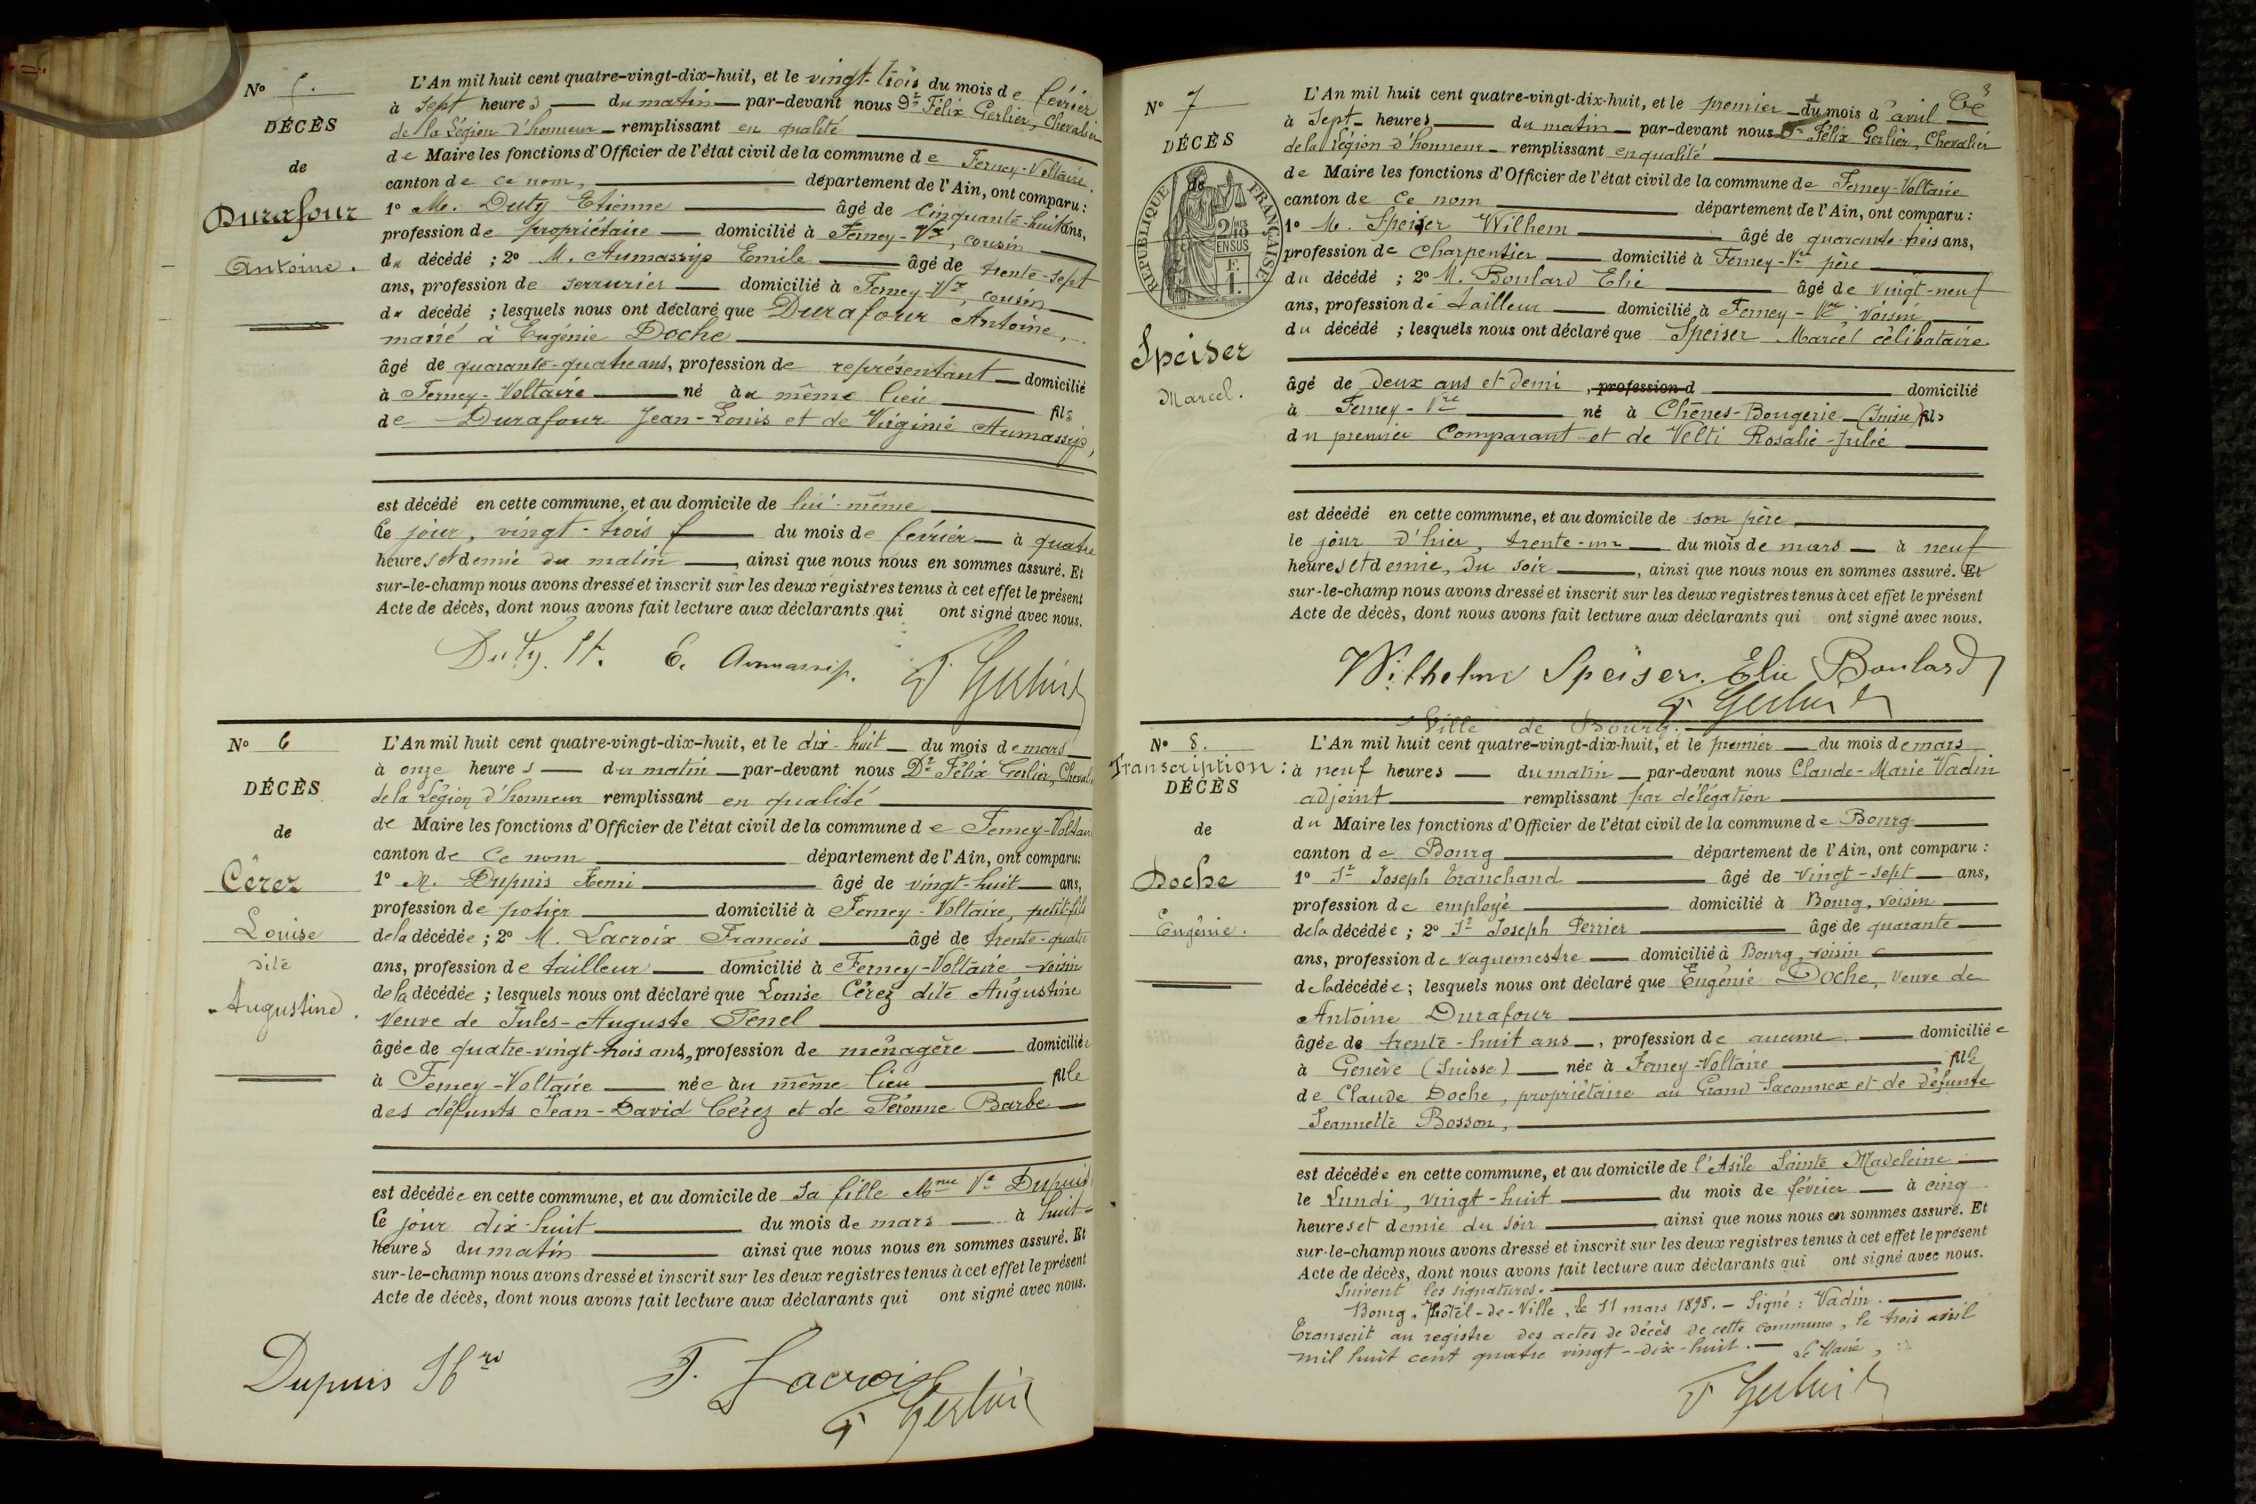 N° 5.
DÉCÈS
de
Durafour
Antoine.
L'An mil huit cent quatre-vingt-dix-huit, et le vingt-trois du mois de février
à sept heures du matin par-devant nous Dr Félix Gerlier, Chevalier
de la Légion d'honneur remplissant en qualité
de Maire les fonctions d'Officier de l'état civil de la commune de Ferney-Voltaire.
canton de ce nom, département de l'Ain, ont comparu :
1° M. Duty Etienne âgé de cinquante-huit ans,
profession de propriétaire domicilié à Ferney-Vre, cousin
du décédé ; 2° M. Aumassip Emile âgé de trente-sept
ans, profession de serrurier domicilié à Ferney-Vre, cousin
du décédé ; lesquels nous ont déclaré que Durafour Antoine,
marié à Eugénie Doche
âgé de quarante-quatre ans, profession de représentant domicilié
à Ferney-Voltaire né au même lieu fils
de Durafour Jean-Louis et de Virginie Aumassip,
est décédé en cette commune, et au domicile de lui-même
Ce jour, vingt-trois du mois de février à quatre
heures et demie du matin, ainsi que nous nous en sommes assuré. Et
sur-le-champ nous avons dressé et inscrit sur les deux registres tenus à cet effet le présent
Acte de décès, dont nous avons fait lecture aux déclarants qui ont signé avec nous.
Duty. Et. E. Aumassip. F. Gerlier
N° 6
DÉCÈS
de
Cérez
Louise
dite
Augustine.
L'An mil huit cent quatre-vingt-dix-huit, et le dix-huit du mois de mars
à onze heures du matin par-devant nous Dr Félix Gerlier, Cheval
de la Légion d'honneur remplissant en qualité
de Maire les fonctions d'Officier de l'état civil de la commune de Ferney-Voltaire
canton de ce nom département de l'Ain, ont comparu:
1° M. Dupuis Henri âgé de vingt-huit ans,
profession de potier domicilié à Ferney-Voltaire, petit-fils
de la décédée ; 2° M. Lacroix François âgé de trente-quatre
ans, profession de tailleur domicilié à Ferney-Voltaire, voisin
de la décédée ; lesquels nous ont déclaré que Louise Cérez dite Augustine
Veuve de Jules-Auguste Penel
âgée de quatre-vingt-trois ans, profession de ménagère domiciliée
à Ferney-Voltaire née au même lieu fille
des défunts Jean-David Cérez et de Péronne Barbe
est décédée en cette commune, et au domicile de sa fille Mme Ve Dupuis
Ce jour dix-huit du mois de mars à huit
heures du matin ainsi que nous nous en sommes assuré. Et
sur-le-champ nous avons dressé et inscrit sur les deux registres tenus à cet effet le présent
Acte de décès, dont nous avons fait lecture aux déclarants qui ont signé avec nous.
Dupuis F. Lacroix
F. Gerlier
3
N° 7
DÉCÈS
de
RÉPUBLIQUE FRANÇAISE
2/10
EN SUS
F.
1.
Speiser
Marcel.
L'An mil huit cent quatre-vingt-dix-huit, et le premier du mois d'avril
à sept heures du matin par-devant nous Dr Félix Gerlier, Chevalier
de la Légion d'honneur remplissant en qualité
de Maire les fonctions d'Officier de l'état civil de la commune de Ferney-Voltaire
canton de ce nom département de l'Ain, ont comparu :
1° M. Speiser Wilhem âgé de quarante-trois ans,
profession de charpentier domicilié à Ferney-Vre père
du décédé ; 2° M. Boulard Elie âgé de vingt-neuf
ans, profession de tailleur domicilié à Ferney-Vre voisin
du décédé ; lesquels nous ont déclaré que Speiser Marcel célibataire
âgé de deux ans et demi, profession d domicilié
à Ferney-Vre né à Chênes-Bougerie (Suisse) fils
du premier Comparant et de Velti Rosalie-Julie
est décédé en cette commune, et au domicile de son père
le jour d'hier, trente-un du mois de mars à neuf
heures et demie, du soir, ainsi que nous nous en sommes assuré. Et
sur-le-champ nous avons dressé et inscrit sur les deux registres tenus à cet effet le présent
Acte de décès, dont nous avons fait lecture aux déclarants qui ont signé avec nous.
Wilhelm Speiser. Elie Boulard
F. Gerlier
Ville de Bourg.
N° 8.
Transcription :
DÉCÈS
de
Doche
Eugénie.
L'An mil huit cent quatre-vingt-dix-huit, et le premier du mois de mars
à neuf heures du matin par-devant nous Claude-Marie Vadin
adjoint remplissant par délégation
du Maire les fonctions d'Officier de l'état civil de la commune de Bourg
canton de Bourg département de l'Ain, ont comparu :
1° Sr Joseph Tranchand âgé de vingt-sept ans,
profession de employé domicilié à Bourg, voisin
de la décédée ; 2° Sr Joseph Perrier âgé de quarante
ans, profession de vaguemestre domicilié à Bourg, voisin
de la décédée ; lesquels nous ont déclaré que Eugénie Doche, veuve de
Antoine Durafour
âgée de trente-huit ans, profession de aucune domiciliée
à Genève (Suisse) née à Ferney-Voltaire fille
de Claude Doche, propriétaire au Grand-Saconnex et de défunte
Jeannette Bosson,
est décédée en cette commune, et au domicile de l'Asile Sainte Madeleine
le Lundi, vingt-huit du mois de février à cinq
heures et demie du soir ainsi que nous nous en sommes assuré. Et
sur-le-champ nous avons dressé et inscrit sur les deux registres tenus à cet effet le présent
Acte de décès, dont nous avons fait lecture aux déclarants qui ont signé avec nous.
Suivent les signatures.
Bourg, Hôtel-de-Ville, le 11 mars 1898. - Signé : Vadin.
Transcrit au registre des actes de décès de cette commune, le trois avril
mil huit cent quatre vingt-dix-huit. Le Maire,
F. Gerlier